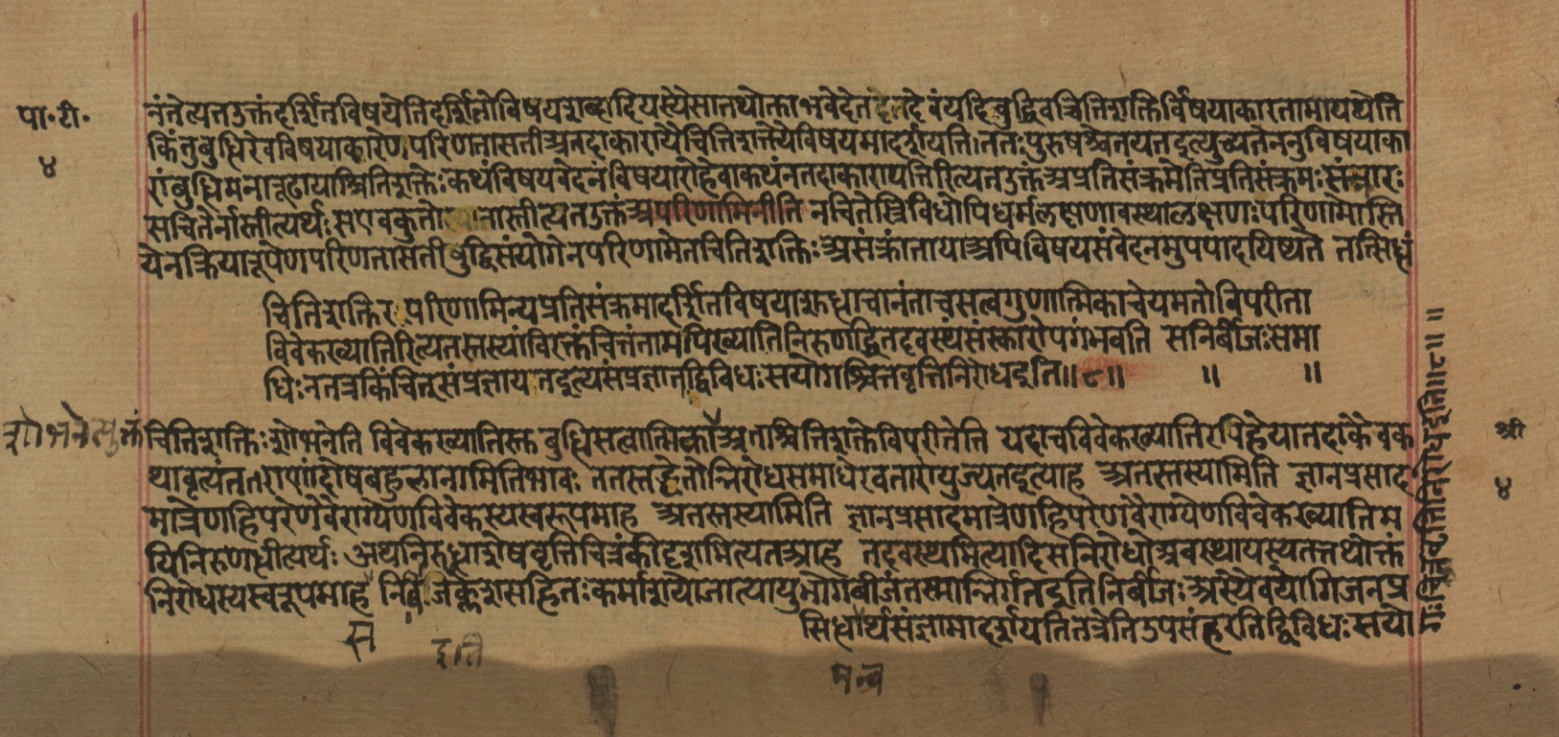 पा॰टी॰
४
नंतेत्यतउक्तंदर्शितविषयेतिदर्शितोविषयशब्दादियस्येसातथोक्ताभवेदेतदेतदेवंयदिबुद्धिवच्चितिशक्तिर्विषयाकारतामापद्येति
किंतुबुधिरेवविषयाकारेणपरिणतासतीअतदाकारायैचितिशक्त्यैविषयमादर्शयति।ततःपुरुषश्चेतयतइत्युच्यतेननुविषयाका
रांबुधिमनारूढायाश्चितिशक्तेःकथंविषयवेदनंविषयारोहेवाकथंनतदाकारापत्तिरित्यतउक्तंअप्रतिसंक्रमेतिप्रतिसंक्रमःसंचारः
सचितेर्नास्तीत्यर्थःसएवकुतो नास्तीत्यतउक्तंअपरिणामिनीति नचितेस्त्रिविधोपिधर्मलक्षणावस्थालक्षणःपरिणामोस्ति
येनक्रियारूपेणपरिणतासतीबुद्धिसंयोगेनपरिणामेतचितिशक्तिःअसंक्रांतायाअपिविषयसंवेदनमुपपादयिष्यते तत्सिधं
चितिशक्तिरपरिणामिन्यप्रतिसंक्रमादर्शितविषयाशुधाचानंताचसत्वगुणात्मिकाचेयमतोविपरीता
विवेकख्यातिरित्यतस्तस्यांविरक्तंचित्तंतामपिख्यातिंनिरुणद्धितदवस्थंसंस्कारोपगंभवति सनिर्बीजःसमा
धिःनतत्रकिंचित्संप्रज्ञायतइत्यसंप्रज्ञातद्विविधःसयोगश्चित्तवृत्तिनिरोधइति॥८॥ ॥ ॥
चितिशक्तिःशोभनेति विवेकख्यातिस्तु बुधिसत्वात्मिका अताश्चितिशक्तेविपरीतेति यदाचविवेकख्यातिरपिहेयातदाकैवक
थावृत्यंतराणांदोषबहुलानामितिभावः ततस्तद्धेतोन्निरोधसमाधेरवतारोयुज्यतइत्याह अतस्तस्यामिति ज्ञानप्रसाद
मात्रेणहिपरेणवैराग्येणविवेकस्यस्वरूपमाह अतस्तस्यामिति ज्ञानप्रसादमात्रेणहिपरेणवैराग्येणविवेकख्यातिम
पिनिरुणधीत्यर्थः अथनिरुधाशेषवृत्तिचित्तंकीदृशमित्यतआह तदवस्थमित्यादिसनिरोधोअवस्थायस्यतत्तथोक्तं
निरोधस्यस्वरूपमाह निर्बीजक्लेशसहितःकर्माशयोजात्यायुर्भोगबीजंतस्मान्निर्गतइतिनिर्बीजःअस्यैवयोगिजनप्र
सिधार्थसंज्ञामादर्शयतितत्रेतिउपसंहरतिद्विविधःसयो
गःचित्तवृत्तिनिरोधइति॥८॥ ॥
श्री
४
स
इति